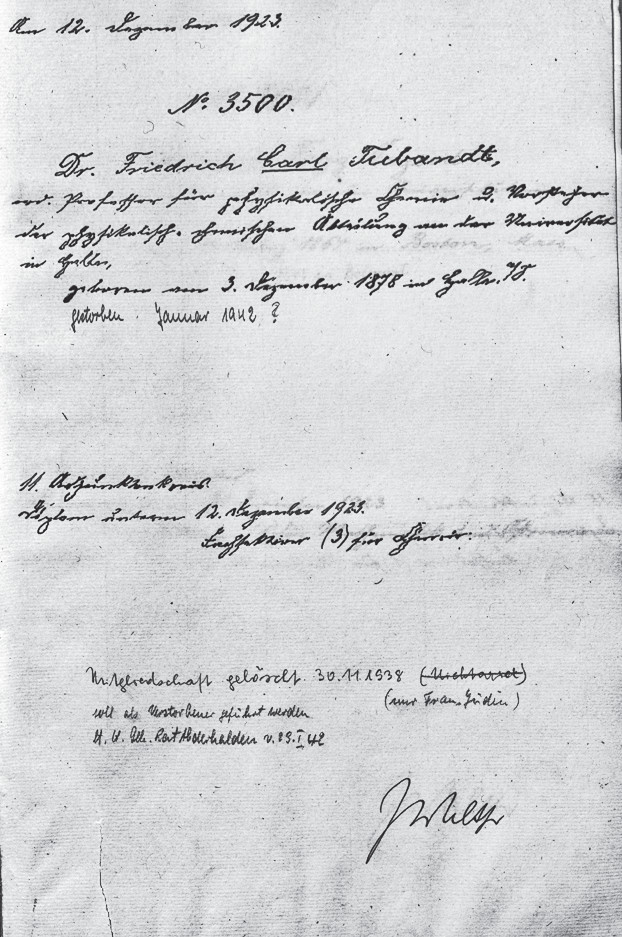 Am 12. Dezember 1923.
No. 3500.
Dr. Friedrich Carl Tubandt,
ord. Professor für physikalische Chemie u. Vorsteher
der physikalisch-chemischen Abteilung an der Universität
in Halle,
geboren am 3. Dezember 1878 in Halle a/S.
gestorben Januar 1942 ?
11. Adjunktenkreis
Diplom unterm 12. Dezember 1923.
Fachsektion (3) für Chemie.
Mitgliedschaft gelöscht 30.11.1938 (Nichtarier)
(nur Frau Jüdin)
soll als Verstorbener geführt werden
Geh. Rat Abderhalden v. 23.I.42
J Walther